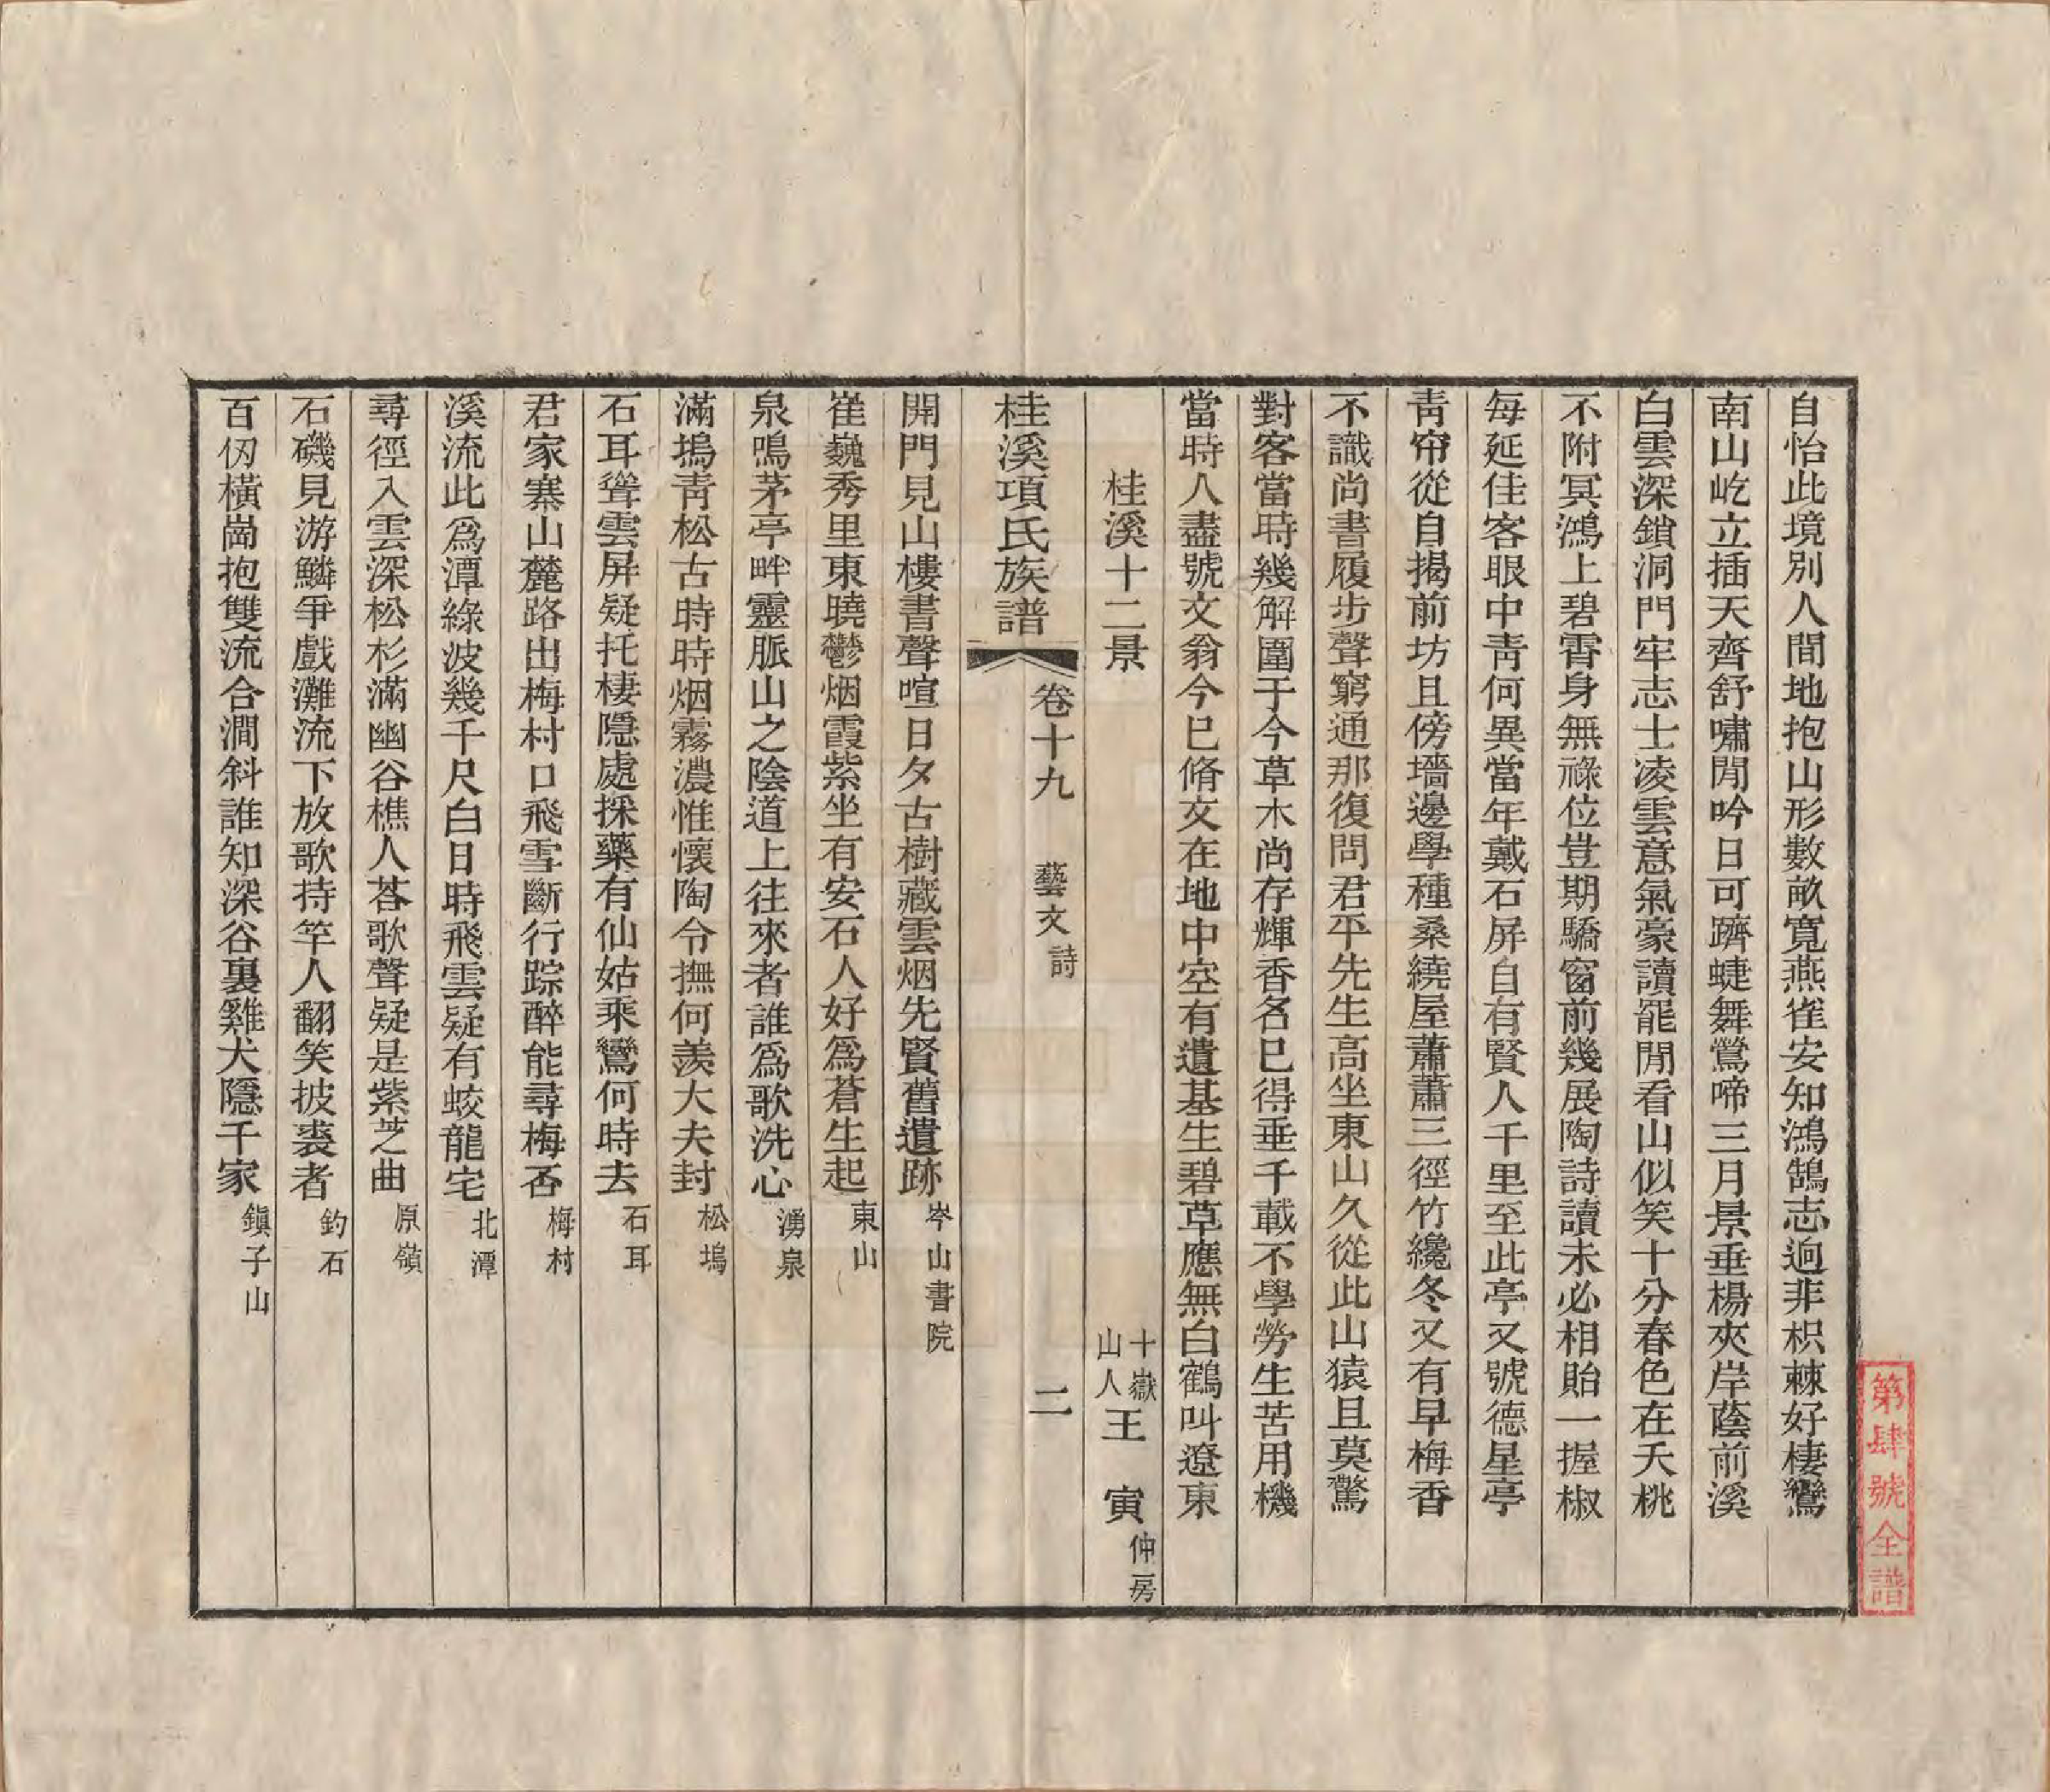 自怡此境別人間地抱山形數畝寬燕雀安知鴻鵠志迥非枳棘好棲鸞
南山屹立插天齊舒嘯閒吟日可躋蜨舞鶯啼三月景垂楊夾岸蔭前溪
白雲深鎖洞門牢志士凌雲意氣豪讀罷閒看山似笑十分春色在夭桃
不附冥鴻上碧霄身無祿位豈期驕窗前幾展陶詩讀未必相貽一握椒
每延佳客眼中靑何異當年戴石屏自有賢人千里至此亭又號德星亭
靑帘從自揭前坊且傍墻邊學種桑繞屋蕭蕭三徑竹纔冬又有早梅香
不識尚書履步聲窮通那復問君平先生高坐東山久從此山猿且莫驚
對客當時幾解圍于今草木尚存輝香名已得垂千載不學勞生苦用機
當時人盡號文翁今已脩文在地中空有遺基生碧草應無白鶴叫遼東
桂溪十二景 十嶽山人王 寅仲房
桂溪項氏族譜 卷十九 藝文 詩 二
開門見山樓書聲喧日夕古樹藏雲烟先賢舊遺跡 岑山書院
崔巍秀里東曉鬱烟霞紫坐有安石人好爲蒼生起 東山
泉鳴茅亭畔靈脈山之陰道上往來者誰爲歌洗心 湧泉
滿塢靑松古時時烟霧濃惟懷陶令撫何羨大夫封 松塢
石耳聳雲屏疑托棲隱處採藥有仙姑乘鸞何時去 石耳
君家寨山麓路出梅村口飛雪斷行踪醉能尋梅否 梅村
溪流此爲潭綠波幾千尺白日時飛雲疑有蛟龍宅 北潭
尋徑入雲深松杉滿幽谷樵人荅歌聲疑是紫芝曲 原嶺
石磯見游鱗爭戲灘流下放歌持竿人翻笑披裘者 釣石
百仭橫崗抱雙流合澗斜誰知深谷裏雞犬隱千家 鎭子山
第肆號全譜